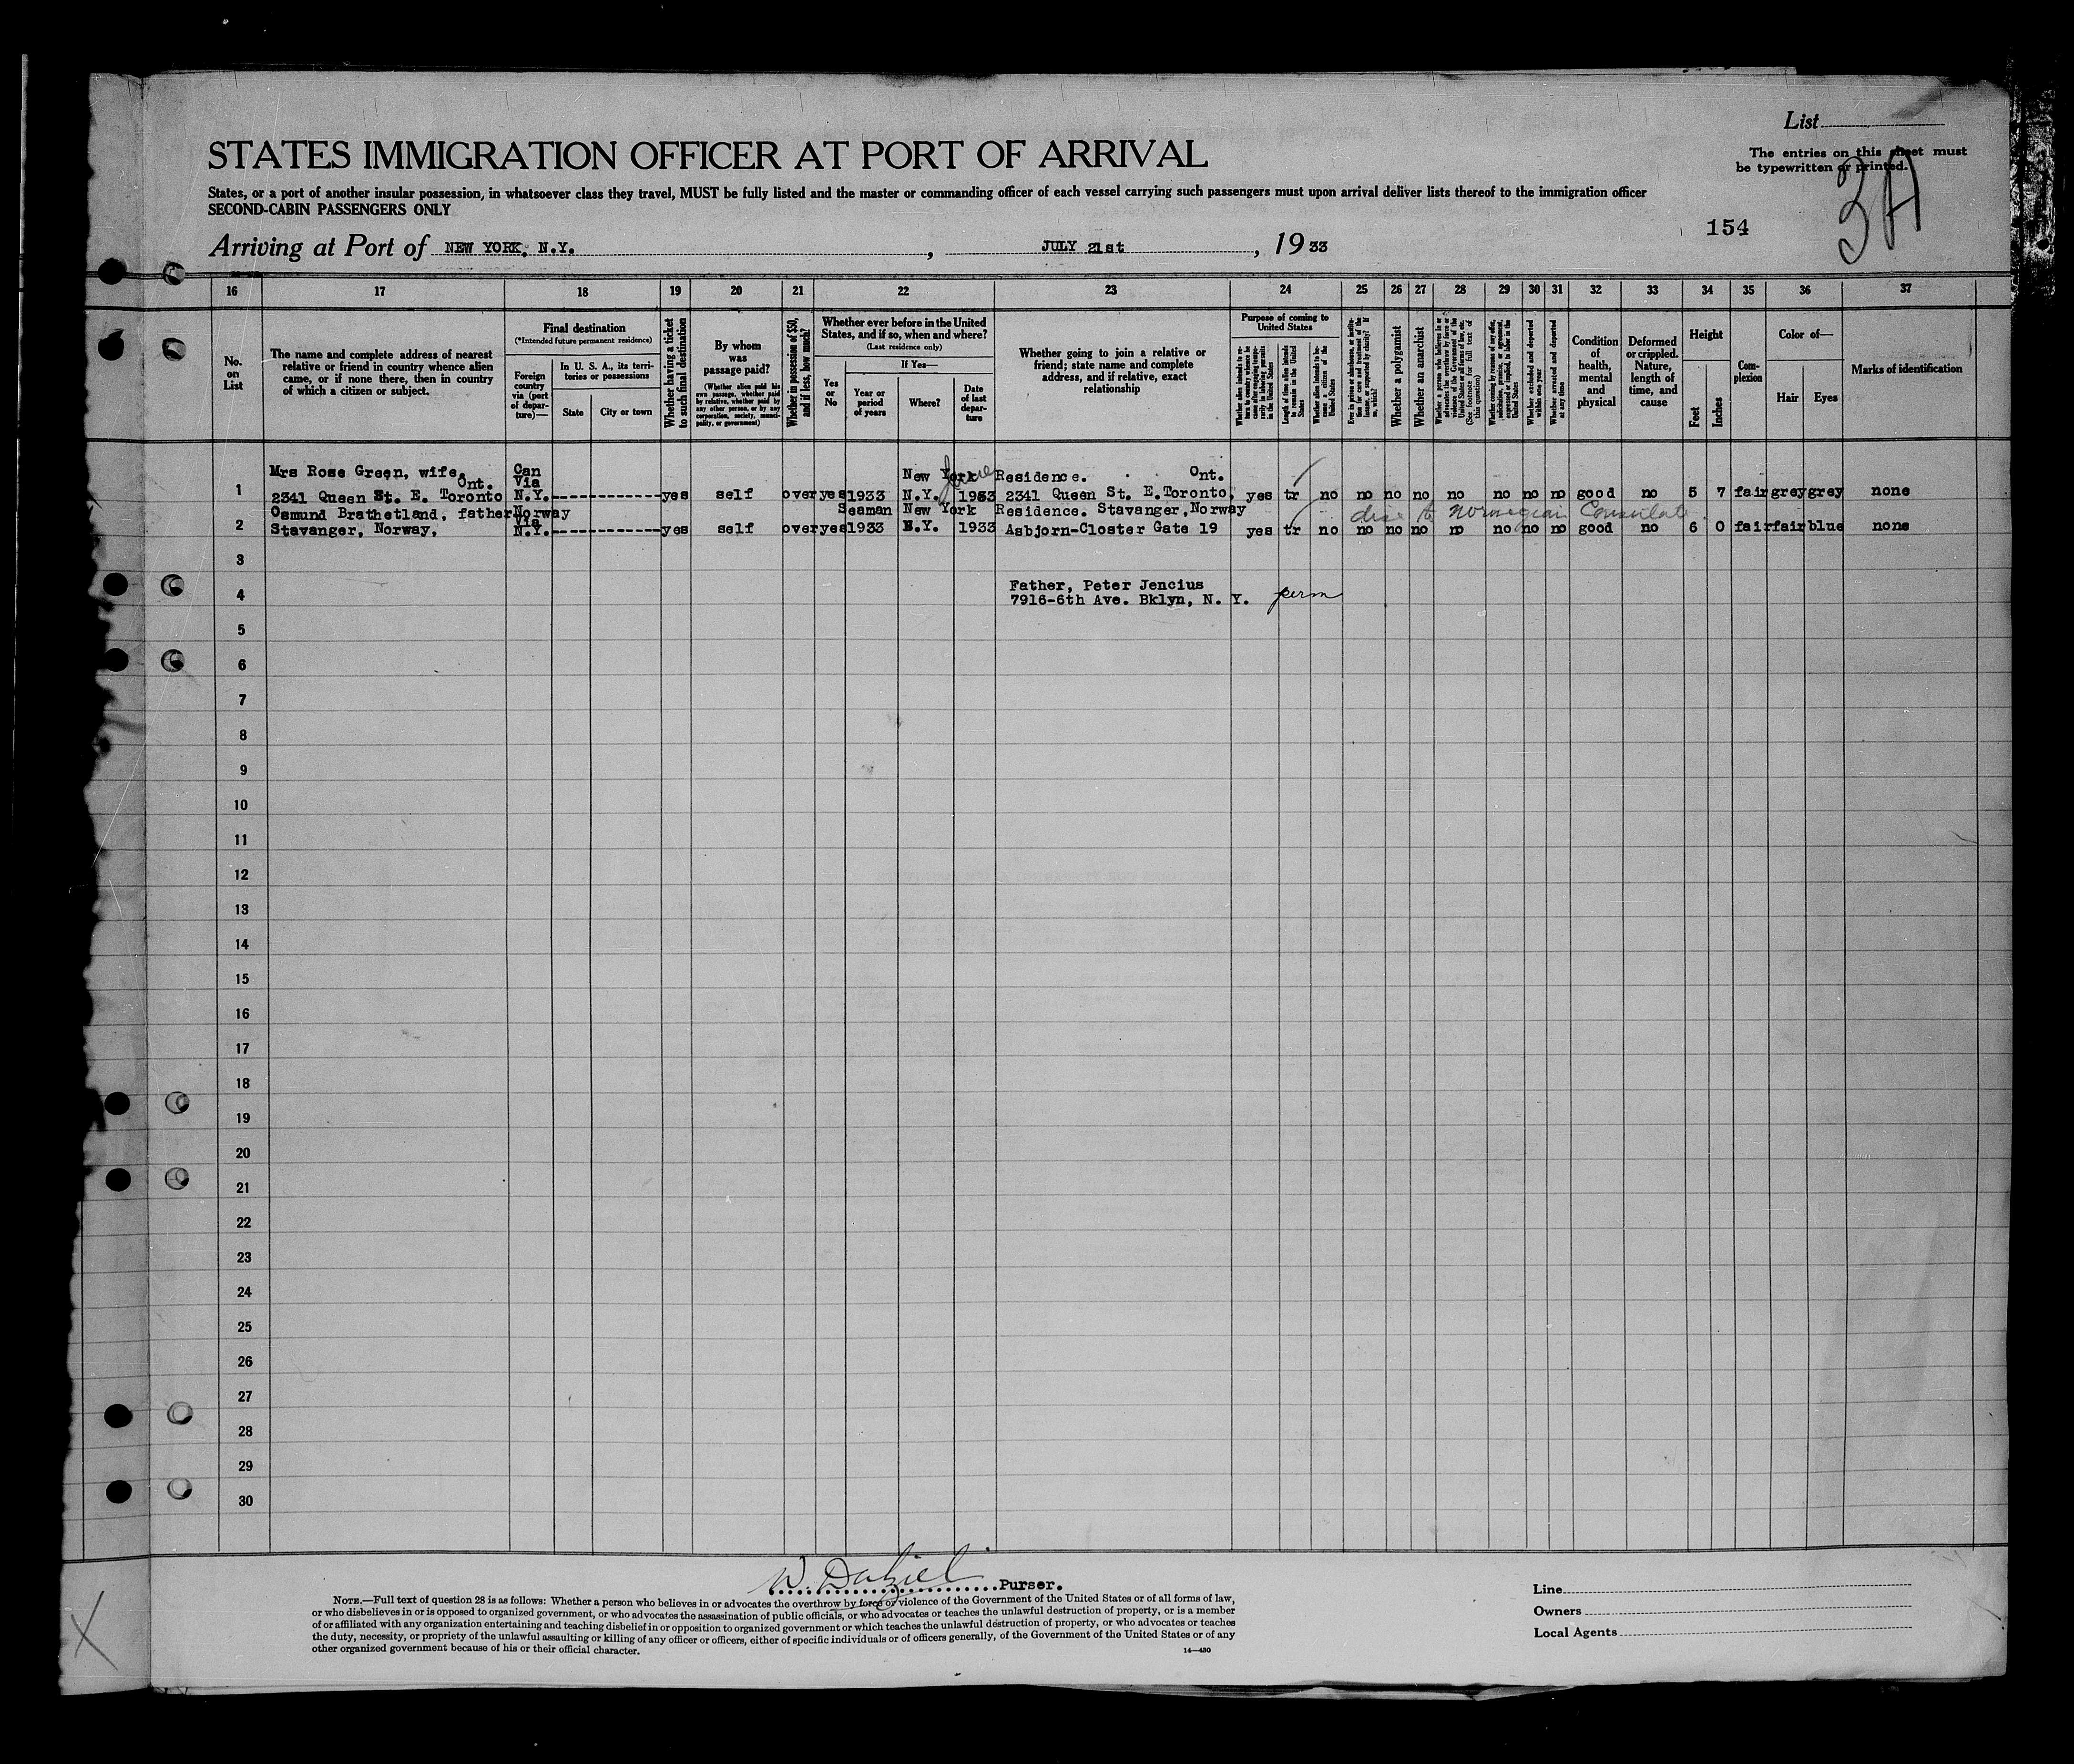 List
STATES IMMIGRATION OFFICER AT PORT OF ARRIVAL
The entries on this sheet must
be typewritten or printed.
3A
States, or a port of another insular possession, in whatsoever class they travel, MUST be fully listed and the master or commanding officer of each vessel carrying such passengers must upon arrival deliver lists thereof to the immigration officer
SECOND-CABIN PASSENGERS ONLY
154
Arriving at Port of NEW YORK, N.Y. , JULY 21st , 1933
16 17 18 19 20 21 22 23 24 25 26 27 28 29 30 31 32 33 34 35 36 37
No. on List
The name and complete address of nearest
relative or friend in country whence alien
came, or if none there, then in country
of which a citizen or subject.
Final destination
(*Intended future permanent residence)
Foreign country via (port of departure)—
In U. S. A., its territories or possessions
State City or town
Whether having a ticket to such final destination
By whom was passage paid?
(Whether alien paid his own passage, whether paid by relative, whether paid by any other person, or by any corporation, society, municipality, or government)
Whether in possession of $50, and if less, how much?
Whether ever before in the United
States, and if so, when and where?
(Last residence only)
Yes or No
If Yes—
Year or period of years
Where?
Date of last departure
Whether going to join a relative or
friend; state name and complete
address, and if relative, exact
relationship
Purpose of coming to United States
Length of time alien intends to remain in the United States
Whether alien intends to become a citizen of the United States
Whether a polygamist
Whether an anarchist
(See footnote for full text of this question)
Whether excluded and deported within one year
Whether arrested and deported at any time
Condition of health, mental and physical
Deformed or crippled. Nature, length of time, and cause
Height
Feet Inches
Complexion
Color of—
Hair Eyes
Marks of identification
Mrs Rose Green, wife. Can New York Residence. Ont.
Ont. Via
1 2341 Queen St. E. Toronto N.Y. yes self over yes 1933 N.Y. 1933 2341 Queen St. E.Toronto, yes tr no no no no no no no no good no 5 7 fair grey grey none
Osmund Brathetland, father Norway Seaman New York Residence. Stavanger,Norway
Via Norwegian Consulate
2 Stavanger, Norway, N.Y. yes self over yes 1933 N.Y. 1933 Asbjorn-Closter Gate 19 yes tr no no no no no no no no good no 6 0 fair fair blue none
3
Father, Peter Jencius
4 7916-6th Ave. Bklyn, N. Y. perm
5
6
7
8
9
10
11
12
13
14
15
16
17
18
19
20
21
22
23
24
25
26
27
28
29
30
W. Dalziel Purser.
NOTE.—Full text of question 28 is as follows: Whether a person who believes in or advocates the overthrow by force or violence of the Government of the United States or of all forms of law,
or who disbelieves in or is opposed to organized government, or who advocates the assassination of public officials, or who advocates or teaches the unlawful destruction of property, or is a member
of or affiliated with any organization entertaining and teaching disbelief in or opposition to organized government or which teaches the unlawful destruction of property, or who advocates or teaches
the duty, necessity, or propriety of the unlawful assaulting or killing of any officer or officers, either of specific individuals or of officers generally, of the Government of the United States or of any
other organized government because of his or their official character.
14—430
Line
Owners
Local Agents
X